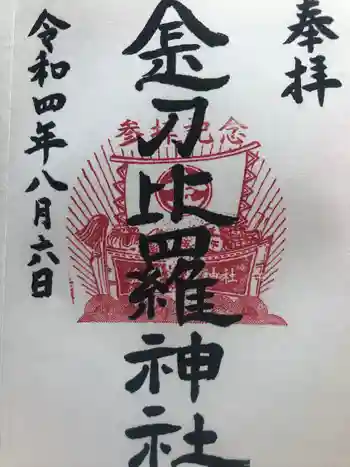 奉拝
金刀比羅神社
参拝記念
神社
令和四年八月六日